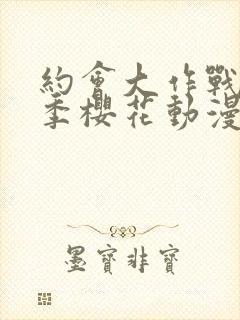 約會大作戰
季櫻花動漫
墨寶非寶